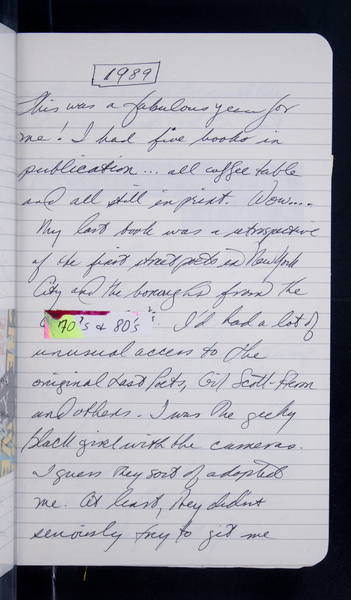 1989
This was a fabulous year for
me! I had five books in
publication... all coffee table
and all still in print. Wow....
My last book was a retrospective
of the first street poets in New York
City and the boroughs from the
70's & 80's. I'd had a lot of
unusual access to the
original Last Poets, Gil Scott-Heron
and others. I was the geeky
black girl with the cameras.
I guess they sort of adopted
me. At least, they didn't
seriously try to get me